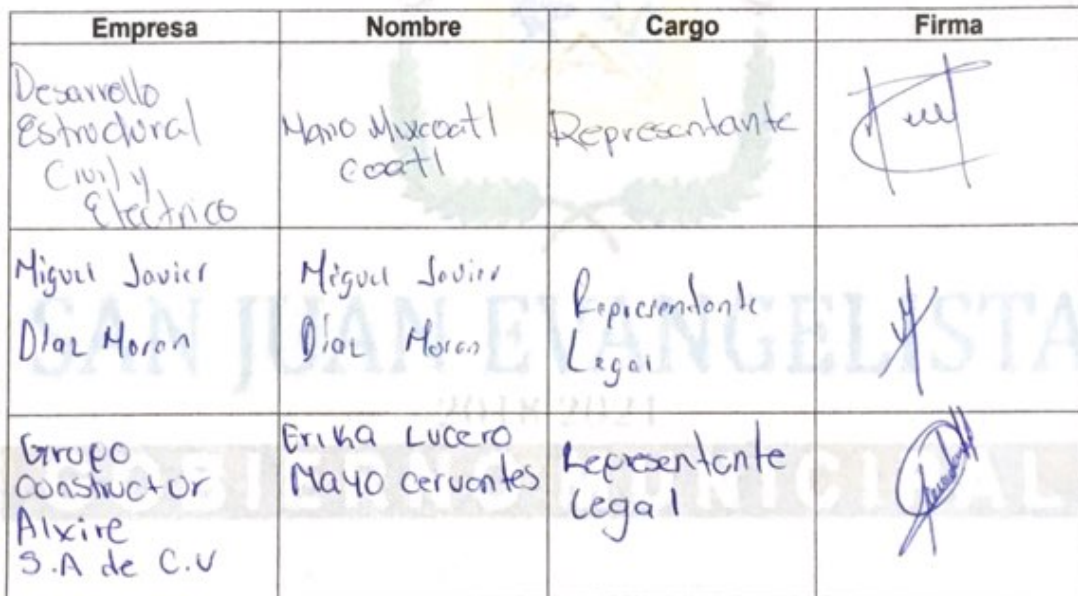 Empresa Nombre Cargo Firma
Desarrollo
Estructural
Civil y
Electrico
Coatl
Representante
Miguel Javier
Díaz Moron
Miguel Javier
Díaz Moron
Representante
Legal
Grupo
Constructor
Alxire
S.A de C.V
Erika Lucero
Mayo cervantes
Representante
Legal
SAN JUAN EVANGELISTA
2018-2021
GOBIERNO MUNICIPAL